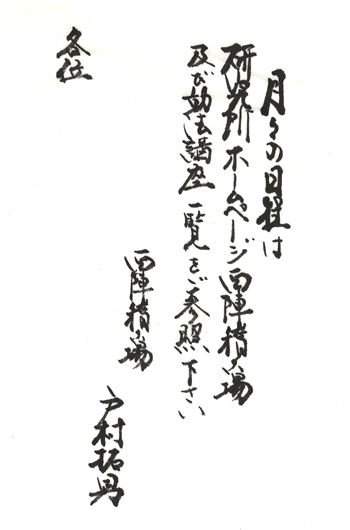 月々の日程は
研究所ホームページ西陣積ヶ場
及び勍法講座一覧をご参照下さい
西陣積ヶ場
戸村拓男
各位